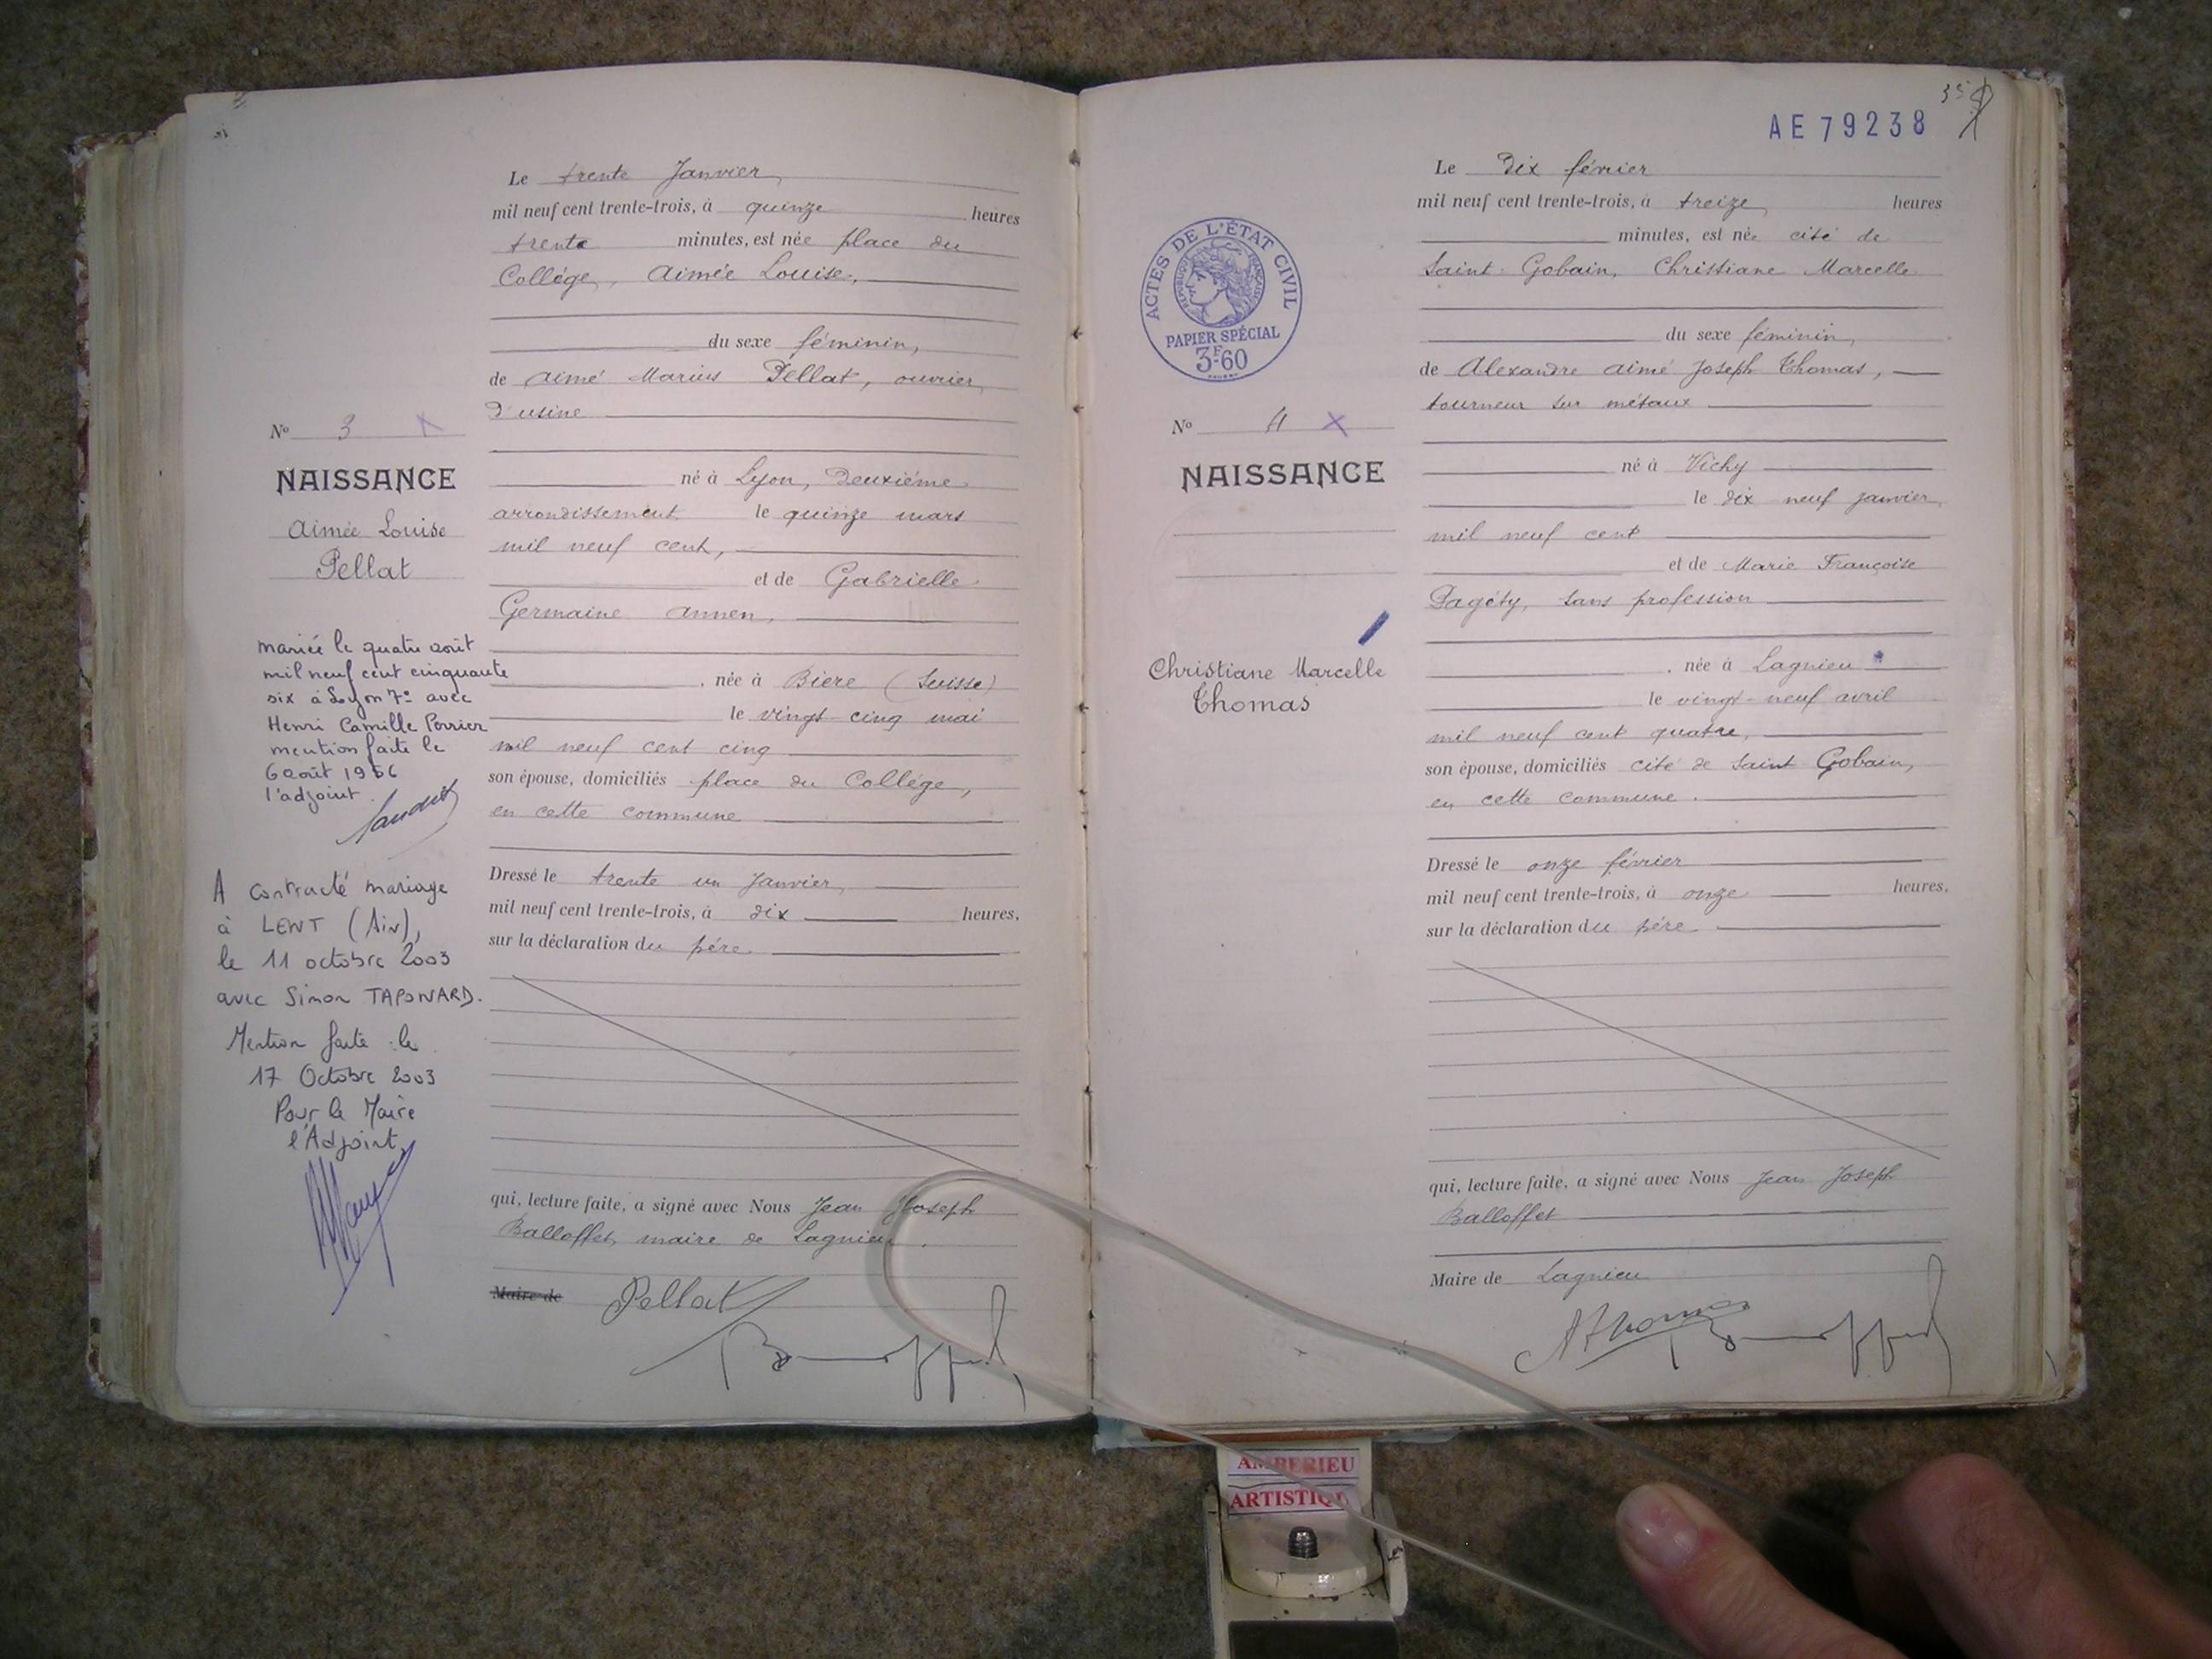 Le trente Janvier,
mil neuf cent trente-trois, à quinze heures
trente minutes, est née place du
Collége, Aimée Louise,
du sexe féminin,
de Aimé Marius Pellat, ouvrier
d'usine
né à Lyon, deuxiéme
arrondissement le quinze mars
mil neuf cent,
et de Gabrielle
Germaine Annen,
, née à Bière (Suisse)
le vingt-cinq mai
mil neuf cent cinq
son épouse, domiciliés place du Collége,
en cette commune
Dressé le trente un Janvier,
mil neuf cent trente-trois, à dix heures,
sur la déclaration du pére
qui, lecture faite, a signé avec Nous Jean Joseph
Balloffet, maire de Lagnieu.
Maire de
Pellat
No 3 X
NAISSANCE
Aimée Louise
Pellat
mariée le quatre août
mil neuf cent cinquante
six à Lyon 7e avec
Henri Camille Perrier
mention faite le
6 août 1956
l'adjoint
A contracté mariage
à LENT (Ain),
le 11 octobre 2003
avec Simon TAPONARD.
Mention faite le
17 Octobre 2003
Pour le Maire
l'Adjoint,
35
AE 79238
Le dix février
mil neuf cent trente-trois, à treize heures
minutes, est née cité de
Saint-Gobain, Christiane Marcelle
du sexe féminin,
de Alexandre Aimé Joseph Thomas,
tourneur sur métaux
né à Vichy
le dix neuf janvier
mil neuf cent
et de Marie Françoise
Pagéty, sans profession
, née à Lagnieu
le vingt-neuf avril
mil neuf cent quatre,
son épouse, domiciliés cité de Saint Gobain,
en cette commune.
Dressé le onze février
mil neuf cent trente-trois, à onze heures,
sur la déclaration du pére
qui, lecture faite, a signé avec Nous Jean Joseph
Balloffet
Maire de Lagnieu
AThomas
ACTES DE L'ÉTAT CIVIL
RÉPUBLIQUE FRANÇAISE
PAPIER SPÉCIAL
3F60
No 4 X
NAISSANCE
Christiane Marcelle
Thomas
AMBERIEU
ARTISTIQU